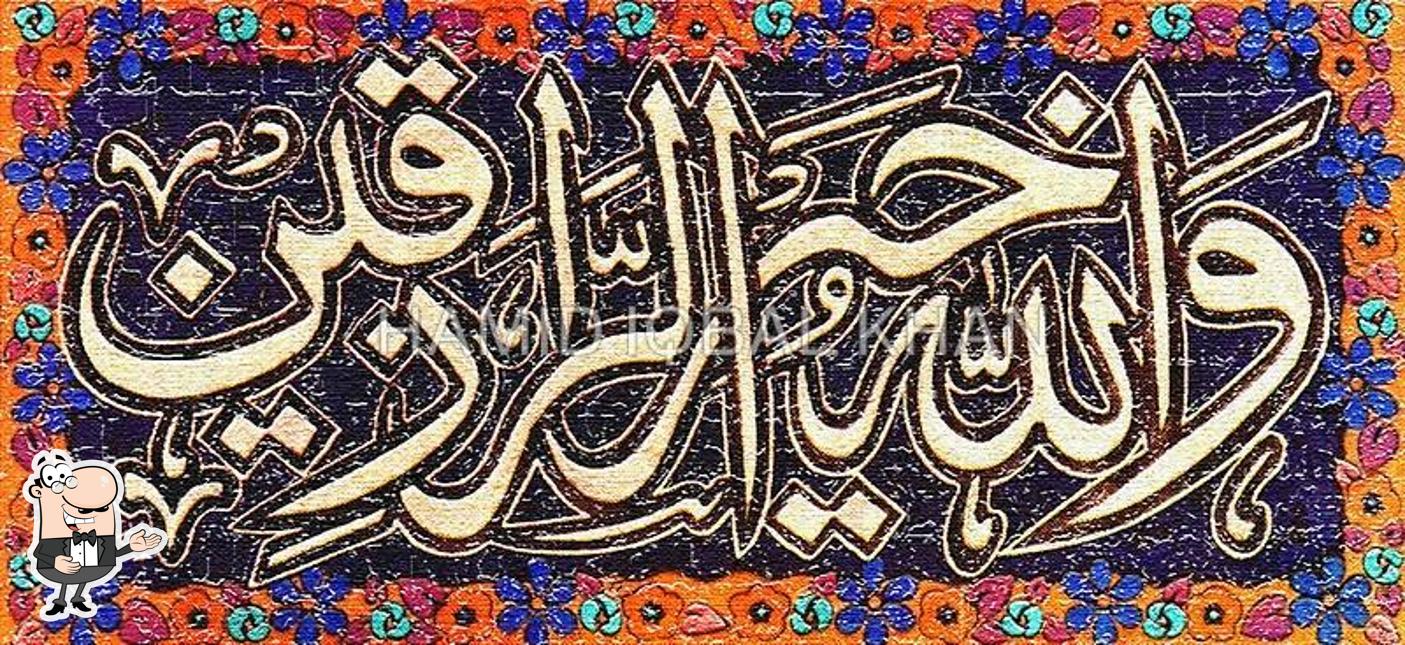 وَاللّٰهُ خَيْرُ الرَّازِقِينَ
HAMID IQBAL KHAN